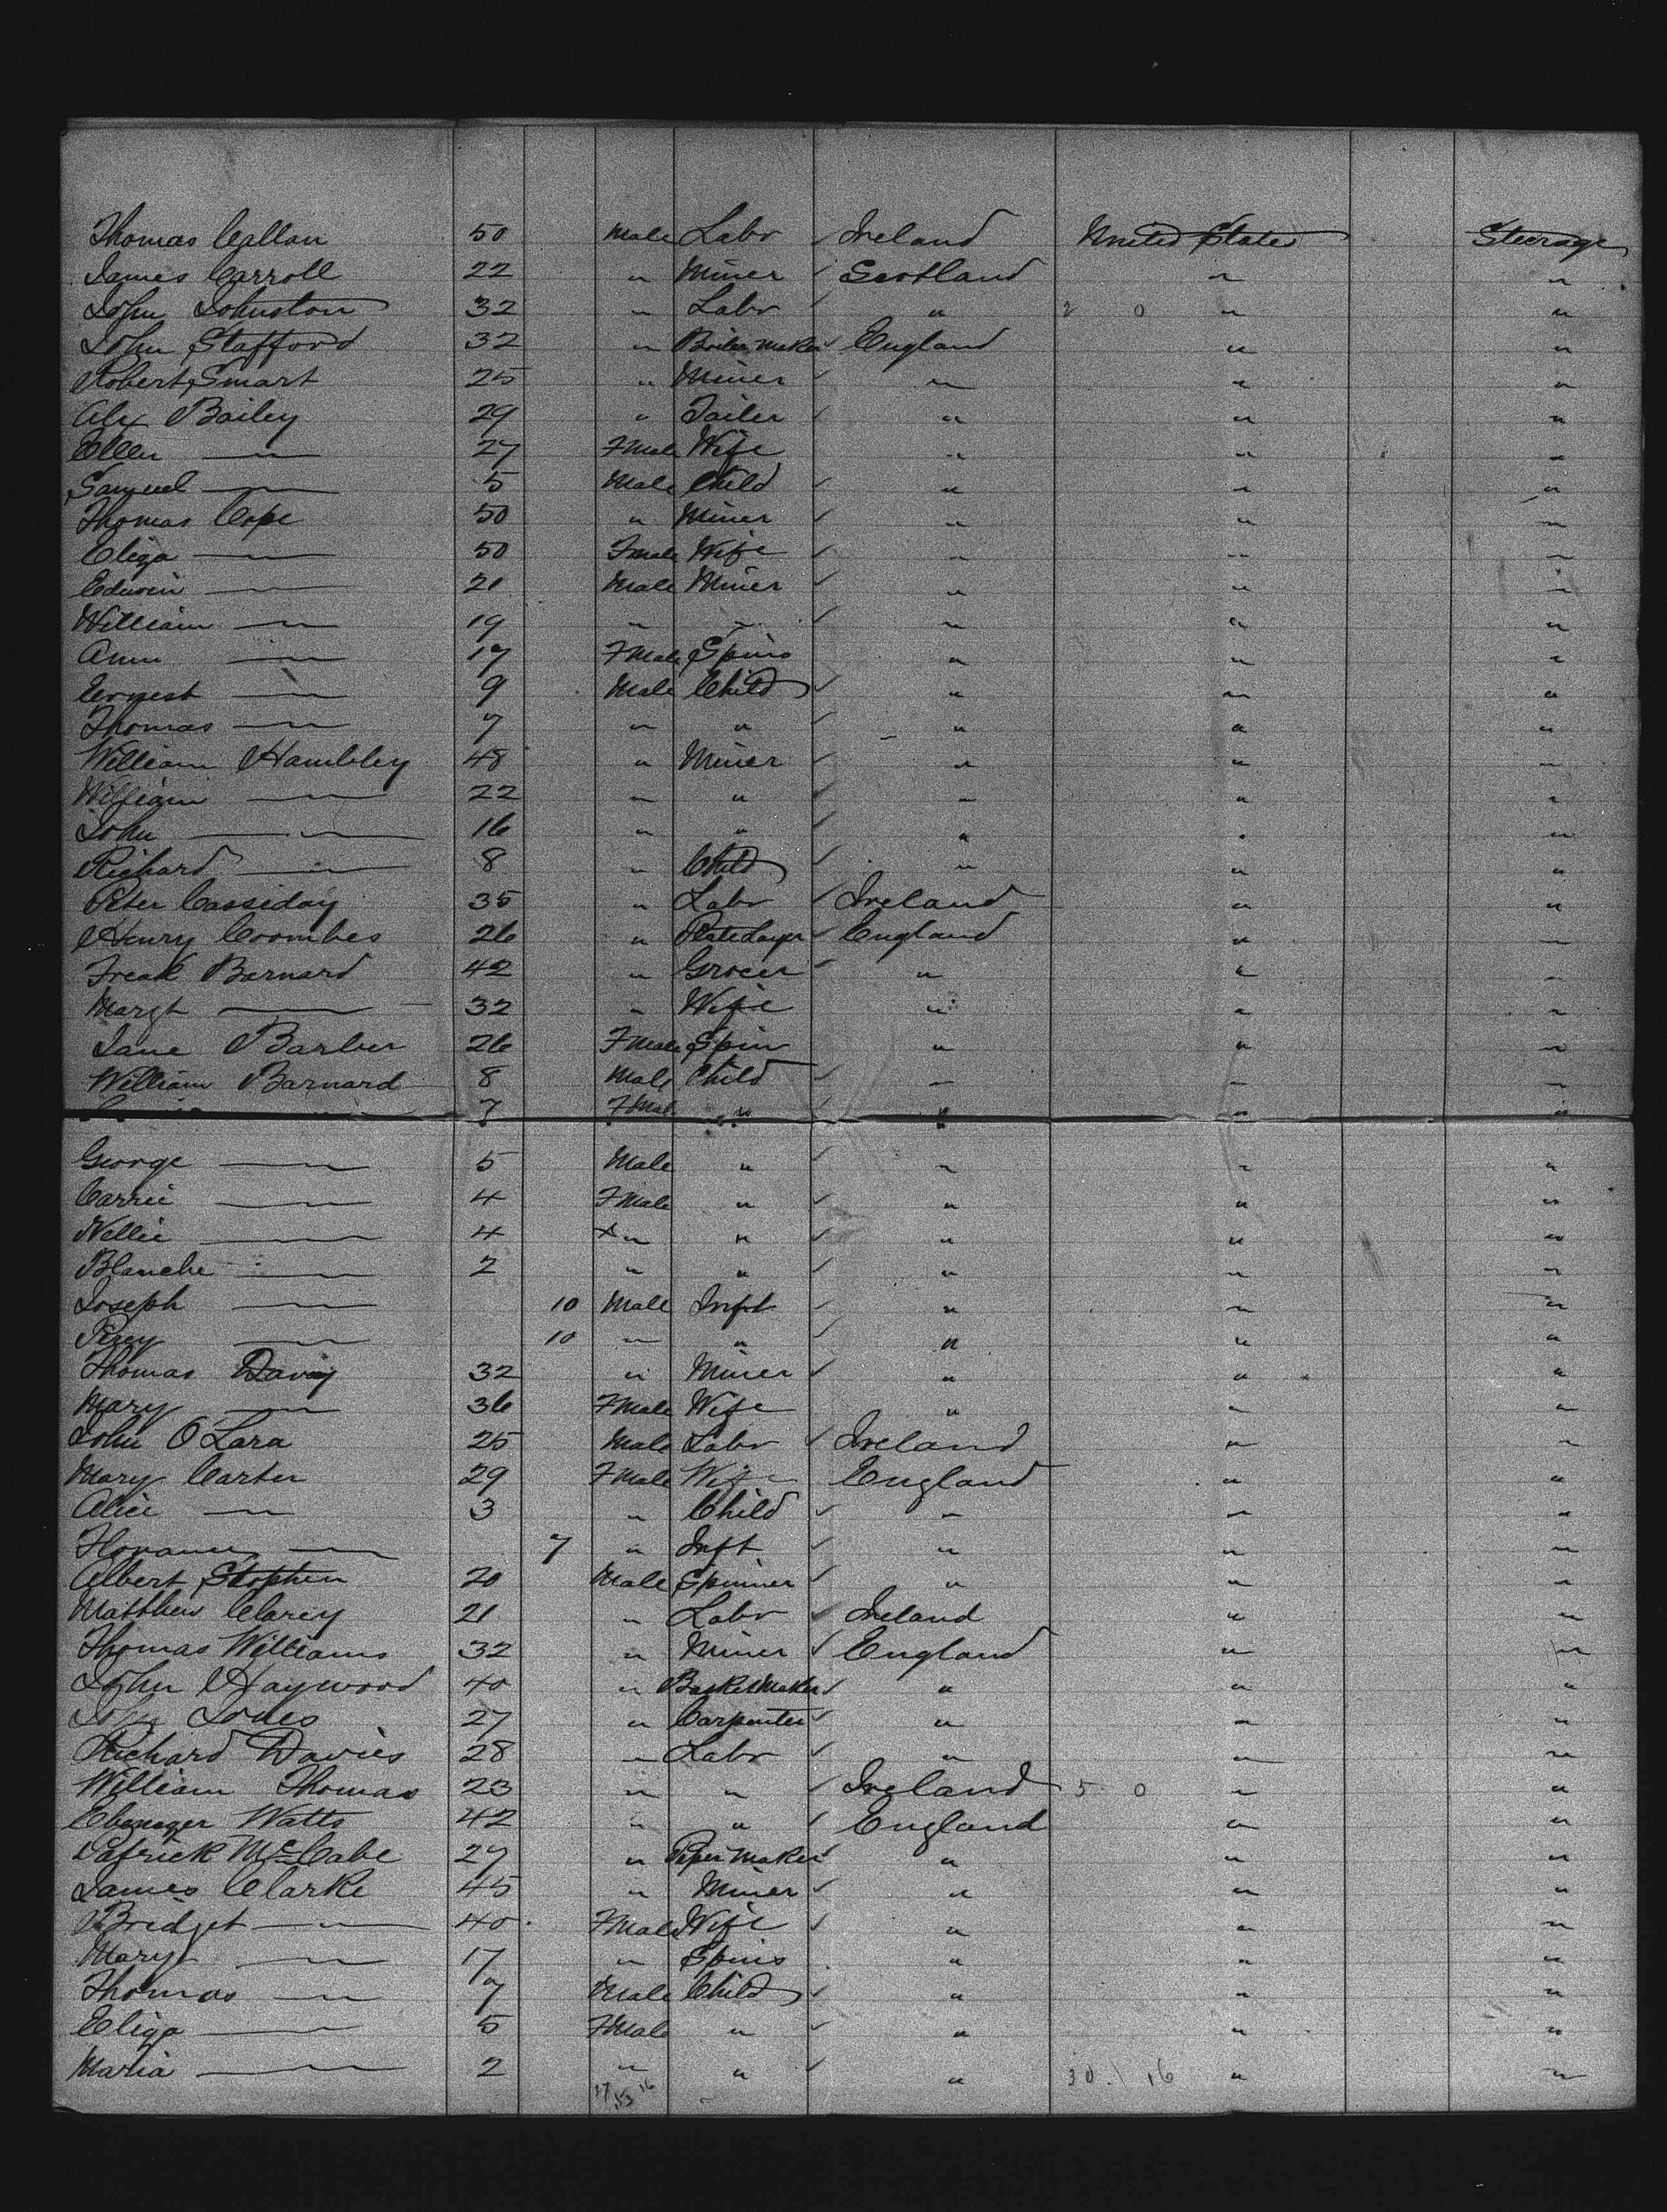 Thomas Callan 50 Male Labr ✓ Ireland United States Steerage
James Carroll 22 " Miner ✓ Scotland " "
John Johnston 32 " Labr ✓ " 2 0 " "
John Stafford 32 " Boiler Maker ✓ England " "
Robert Smart 25 " Miner ✓ " " "
Alex Bailey 29 " Tailer ✓ " " "
Ellen — " — 27 FMale Wife " " "
Samuel — " — 5 Male Child ✓ " " "
Thomas Cope 50 " Miner ✓ " " "
Eliza — " — 50 Fmale Wife ✓ " " "
Edwin — " — 21 Male Miner ✓ " " "
William — " — 19 " " ✓ " " "
Ann — " — 17 FMale Spins " " "
Ernest — " — 9 Male Child ✓ " " "
Thomas — " — 7 " " ✓ " " "
William Hambley 48 " Miner ✓ " " "
William — " — 22 " " ✓ " " "
John — " — 16 " " ✓ " " "
Richard — " — 8 " Child ✓ " " "
Peter Cassiday 35 " Labr ✓ Ireland " "
Henry Coombes 26 " Plate Layer ✓ England " "
Freak Bernard 42 " Grocer ✓ " " "
Margt — " — 32 " Wife " " "
Jane Barber 26 FMale Spin " " "
William Barnard 8 Male Child ✓ " " "
7 FMale " ✓ " " "
George — " — 5 Male " ✓ " " "
Carrie — " — 4 FMale " ✓ " " "
Nellie — " — 4 × " " ✓ " " "
Blanche — " — 2 " " ✓ " " "
Joseph — " — 10 Male Inft ✓ " " "
Percy — " — 10 " " ✓ " " "
Thomas Davy 32 " Miner ✓ " " "
Mary — " — 36 FMale Wife " " "
John O'Lara 25 Male Labr ✓ Ireland " "
Mary Carter 29 FMale Wife England " "
Alice — " — 3 " Child ✓ " " "
— " — 7 " Inft ✓ " " "
Albert Stophen 20 Male Spinner ✓ " " "
Matthew Clarey 21 " Labr ✓ Ireland " "
Thomas Williams 32 " Miner ✓ England " "
John Haywood 40 " Basket Maker ✓ " " "
John Jones 27 " Carpenter ✓ " " "
Richard Davies 28 " Labr ✓ " " "
William Thomas 23 " " ✓ Ireland 5 0 " "
Ebenezer Watts 42 " " ✓ England " "
Patrick McCabe 27 " Paper Maker ✓ " " "
James Clarke 45 " Miner ✓ " " "
Bridget — " — 40 FMale Wife ✓ " " "
Mary — " — 17 " Spins " " "
Thomas — " — 7 Male Child ✓ " " "
Eliza — " — 5 FMale " ✓ " " "
Maria — " — 2 " " ✓ " 30 16 " "